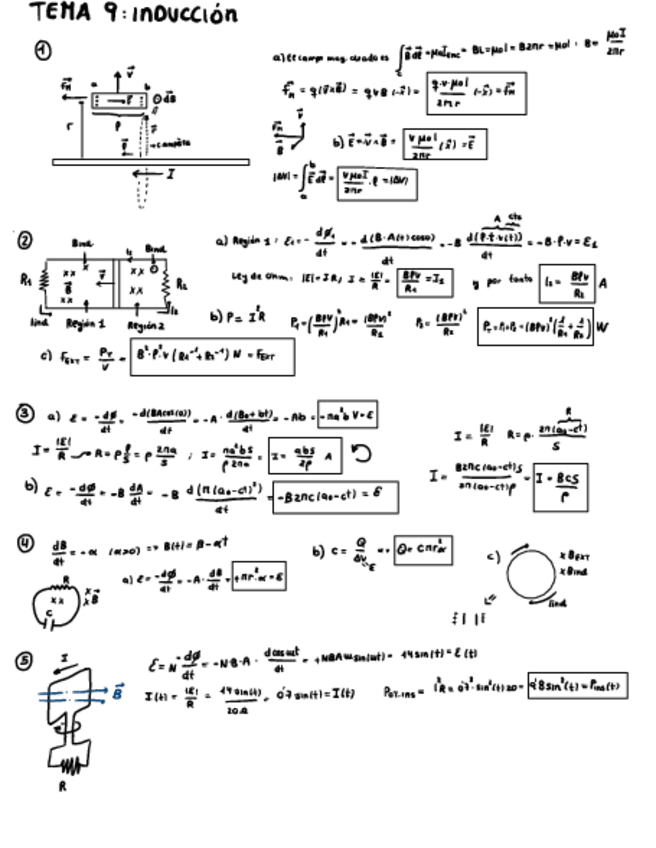 TEMA 9: INDUCCIÓN
①
a) El campo mag. creado es ∫c B⃗ dl⃗ = μ₀I_enc = BL = μ₀I = B2πr = μ₀I · B = μ₀I/2πr
F⃗м = q(v⃗×B⃗) = qvB(-x⃗) = q·v·μ₀I/2πr (-x⃗) = F⃗м
b) E⃗ = v⃗×B⃗ = vμ₀I/2πr (x⃗) = E⃗
|ΔV| = ∫ₐᵇ E⃗ dl⃗ = vμ₀I/2πr · l = |ΔV|
F⃗м a v⃗ b dB
r l
I
F⃗м v⃗ B⃗
②
Bind I₁ Bind
R₁ B⃗ v⃗ R₂
Iind Región 1 Región 2 I₂
a) Región 1: ε₁ = -dϕ₁/dt = -d(B·A(t)cos0)/dt = -B d(l·v(t))/dt = -B·l·v = ε₁
A cte
Ley de Ohm: |ε| = IR, I = |ε|/R = Blv/R₁ = I₁ y por tanto I₂ = Blv/R₂ A
b) P = I²R P₁ = (Blv/R₁)² R₁ = (Blv)²/R₁ P₂ = (Blv)²/R₂ P_T = P₁+P₂ = (Blv)²(1/R₁ + 1/R₂) W
c) F_EXT = P_T/v = B²·l²·v(R₁⁻¹ + R₂⁻¹) N = F_EXT
③
a) ε = -dϕ/dt = -d(BAcos(0))/dt = -A · d(B₀+bt)/dt = -Ab = -πa²b V = ε
I = |ε|/R → R = ρ l/S = ρ 2πa/S ; I = πa²bS/ρ2πa = I = abS/2ρ A
b) ε = -dϕ/dt = -B dA/dt = -B d(π(a₀-ct)²)/dt = -B2πc(a₀-ct) = ε
I = |ε|/R R = ρ · 2π(a₀-ct)/S
R
I = B2πc(a₀-ct)S/2π(a₀-ct)ρ = I = BcS/ρ
④
dB/dt = -α (α>0) => B(t) = β-αt
a) ε = -dϕ/dt = -A · dB/dt = +πr²·α = ε
R
B⃗
C
b) C = Q/ΔV → Q = Cπr²α
ε
c)
B_EXT
Bind
Iind
⑤
I
B⃗
R
ε = N -dϕ/dt = -N·B·A · dcosωt/dt = +NBAωsin(ωt) = 14sin(t) = ε(t)
I(t) = |ε|/R = 14sin(t)/20Ω = 0'7sin(t) = I(t) P_OT.INS = I²R = 0'7²·sin²(t)20 = 9'8sin²(t) = P_INS(t)